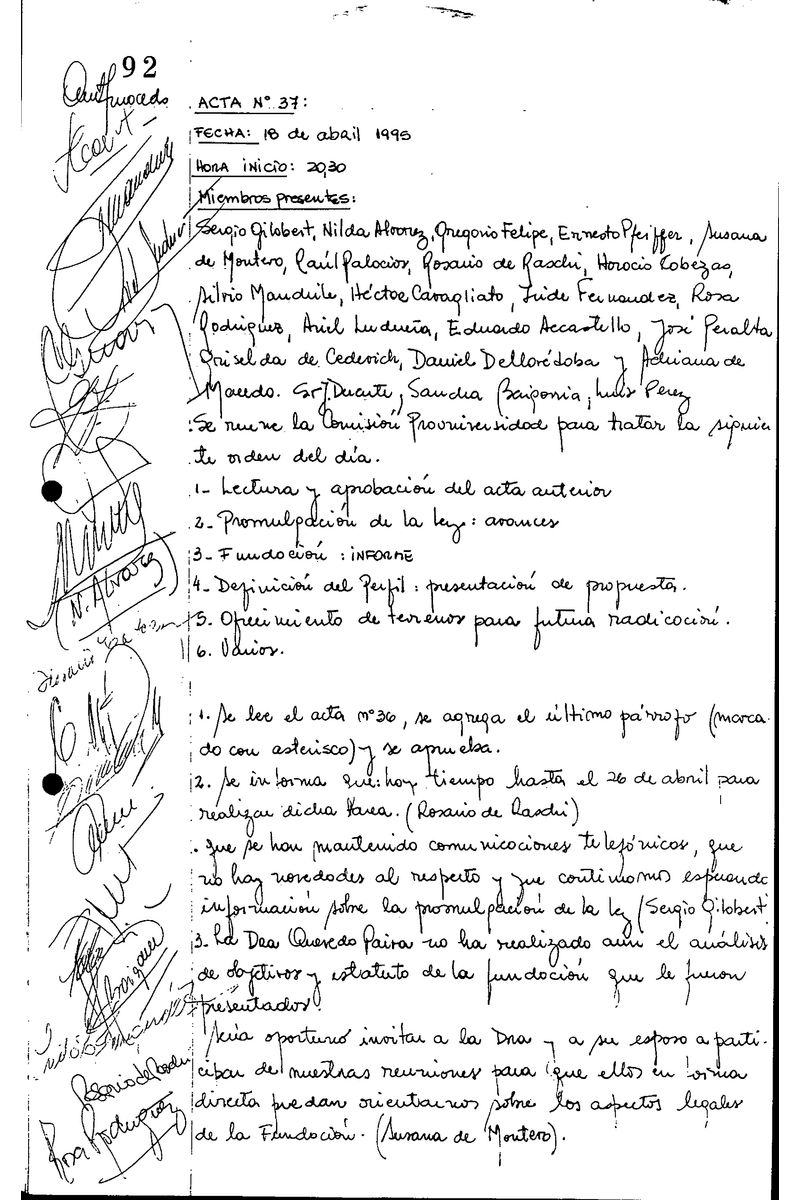 92
ACTA Nº 37:
FECHA: 18 de abril 1995
HORA INICIO: 20,30
Miembros presentes:
Sergio Gilobert, Nilda Alvarez, Gregorio Felipe, Ernesto Pfeiffer, Susana
de Montero, Raúl Palacios, Rosario de Raschi, Horacio Cabezas,
Silvio Mandrile, Héctor Cavagliato, Fernandez, Rosa
Rodriguez, Ariel Ludueña, Eduardo Accastello, José Peralta
Griselda de Cederich, Daniel Dellorédoba y Adriana de
Macedo. Sr. Ducate; Sandra Baigorria; Luis Perez
Se reune la Comisión Prouniversidad para tratar la siguien
te orden del día.
1- Lectura y aprobación del acta anterior
2- Promulgación de la ley: avances
3- Fundación: INFORME
4- Definición del Perfil: presentación de propuesta.
5- Ofrecimiento de terrenos para futura radicación.
6. Varios.
1. Se lee el acta nº 36, se agrega el último párrofo (marca-
do con asterisco) y se aprueba.
2. Se informa que: hay tiempo hasta el 26 de abril para
realizar dicha tarea. (Rosario de Raschi)
. Que se han mantenido comunicaciones telefónicas, que
no hay novedades al respecto y que continuamos esperando
información sobre la promulgación de la ley (Sergio Gilobert)
3. La Dra Quevedo Paiva no ha realizado aún el análisis
de objetivos y estatuto de la fundación que le fueron
presentados.
Sería oportuno invitar a la Dra y a su esposo a parti-
cipar de nuestras reuniones para que ellos en forma
directa puedan orientarnos sobre los aspectos legales
de la Fundación. (Susana de Montero).
(N. Alvarez)
Rosario de Raschi
Rosa Rodriguez